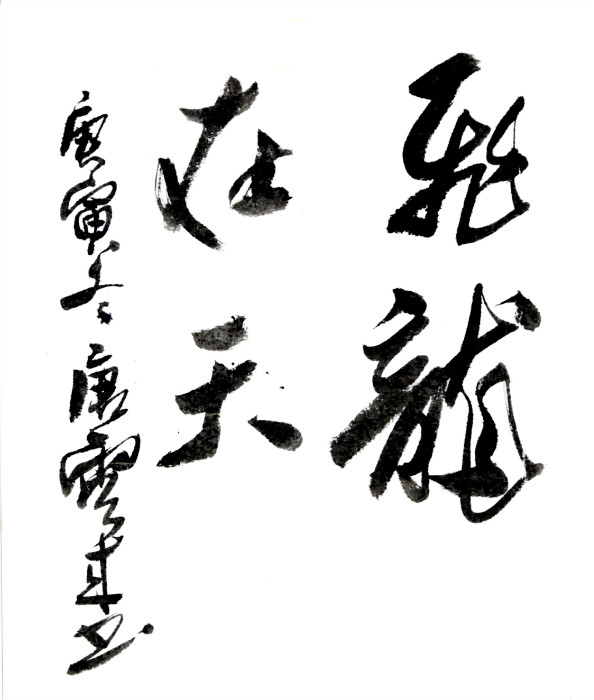 飛龍
在天
庚寅冬唐雲來书